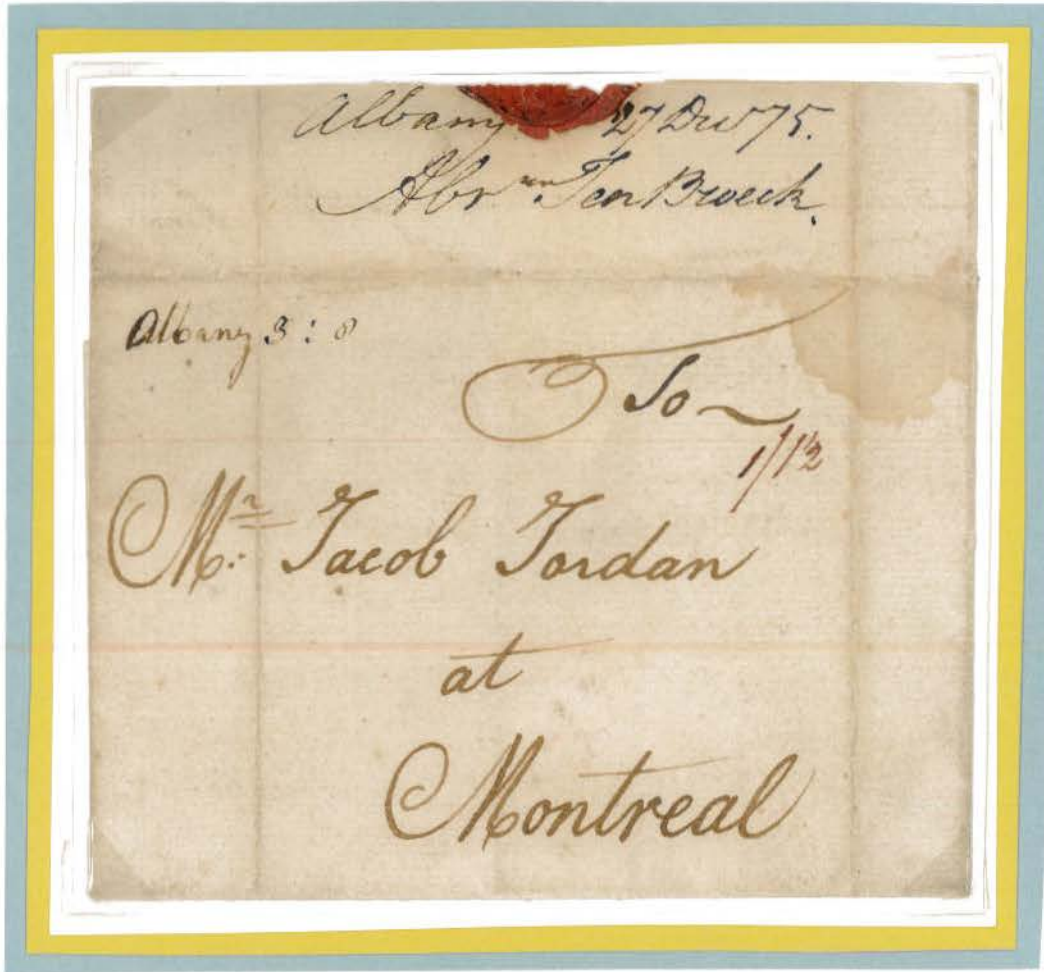 Albany 27 Decr 75.
Abrm Ten Broeck.
Albany 3 : 8
To
1/1½
Mr: Jacob Jordan
at
Montreal